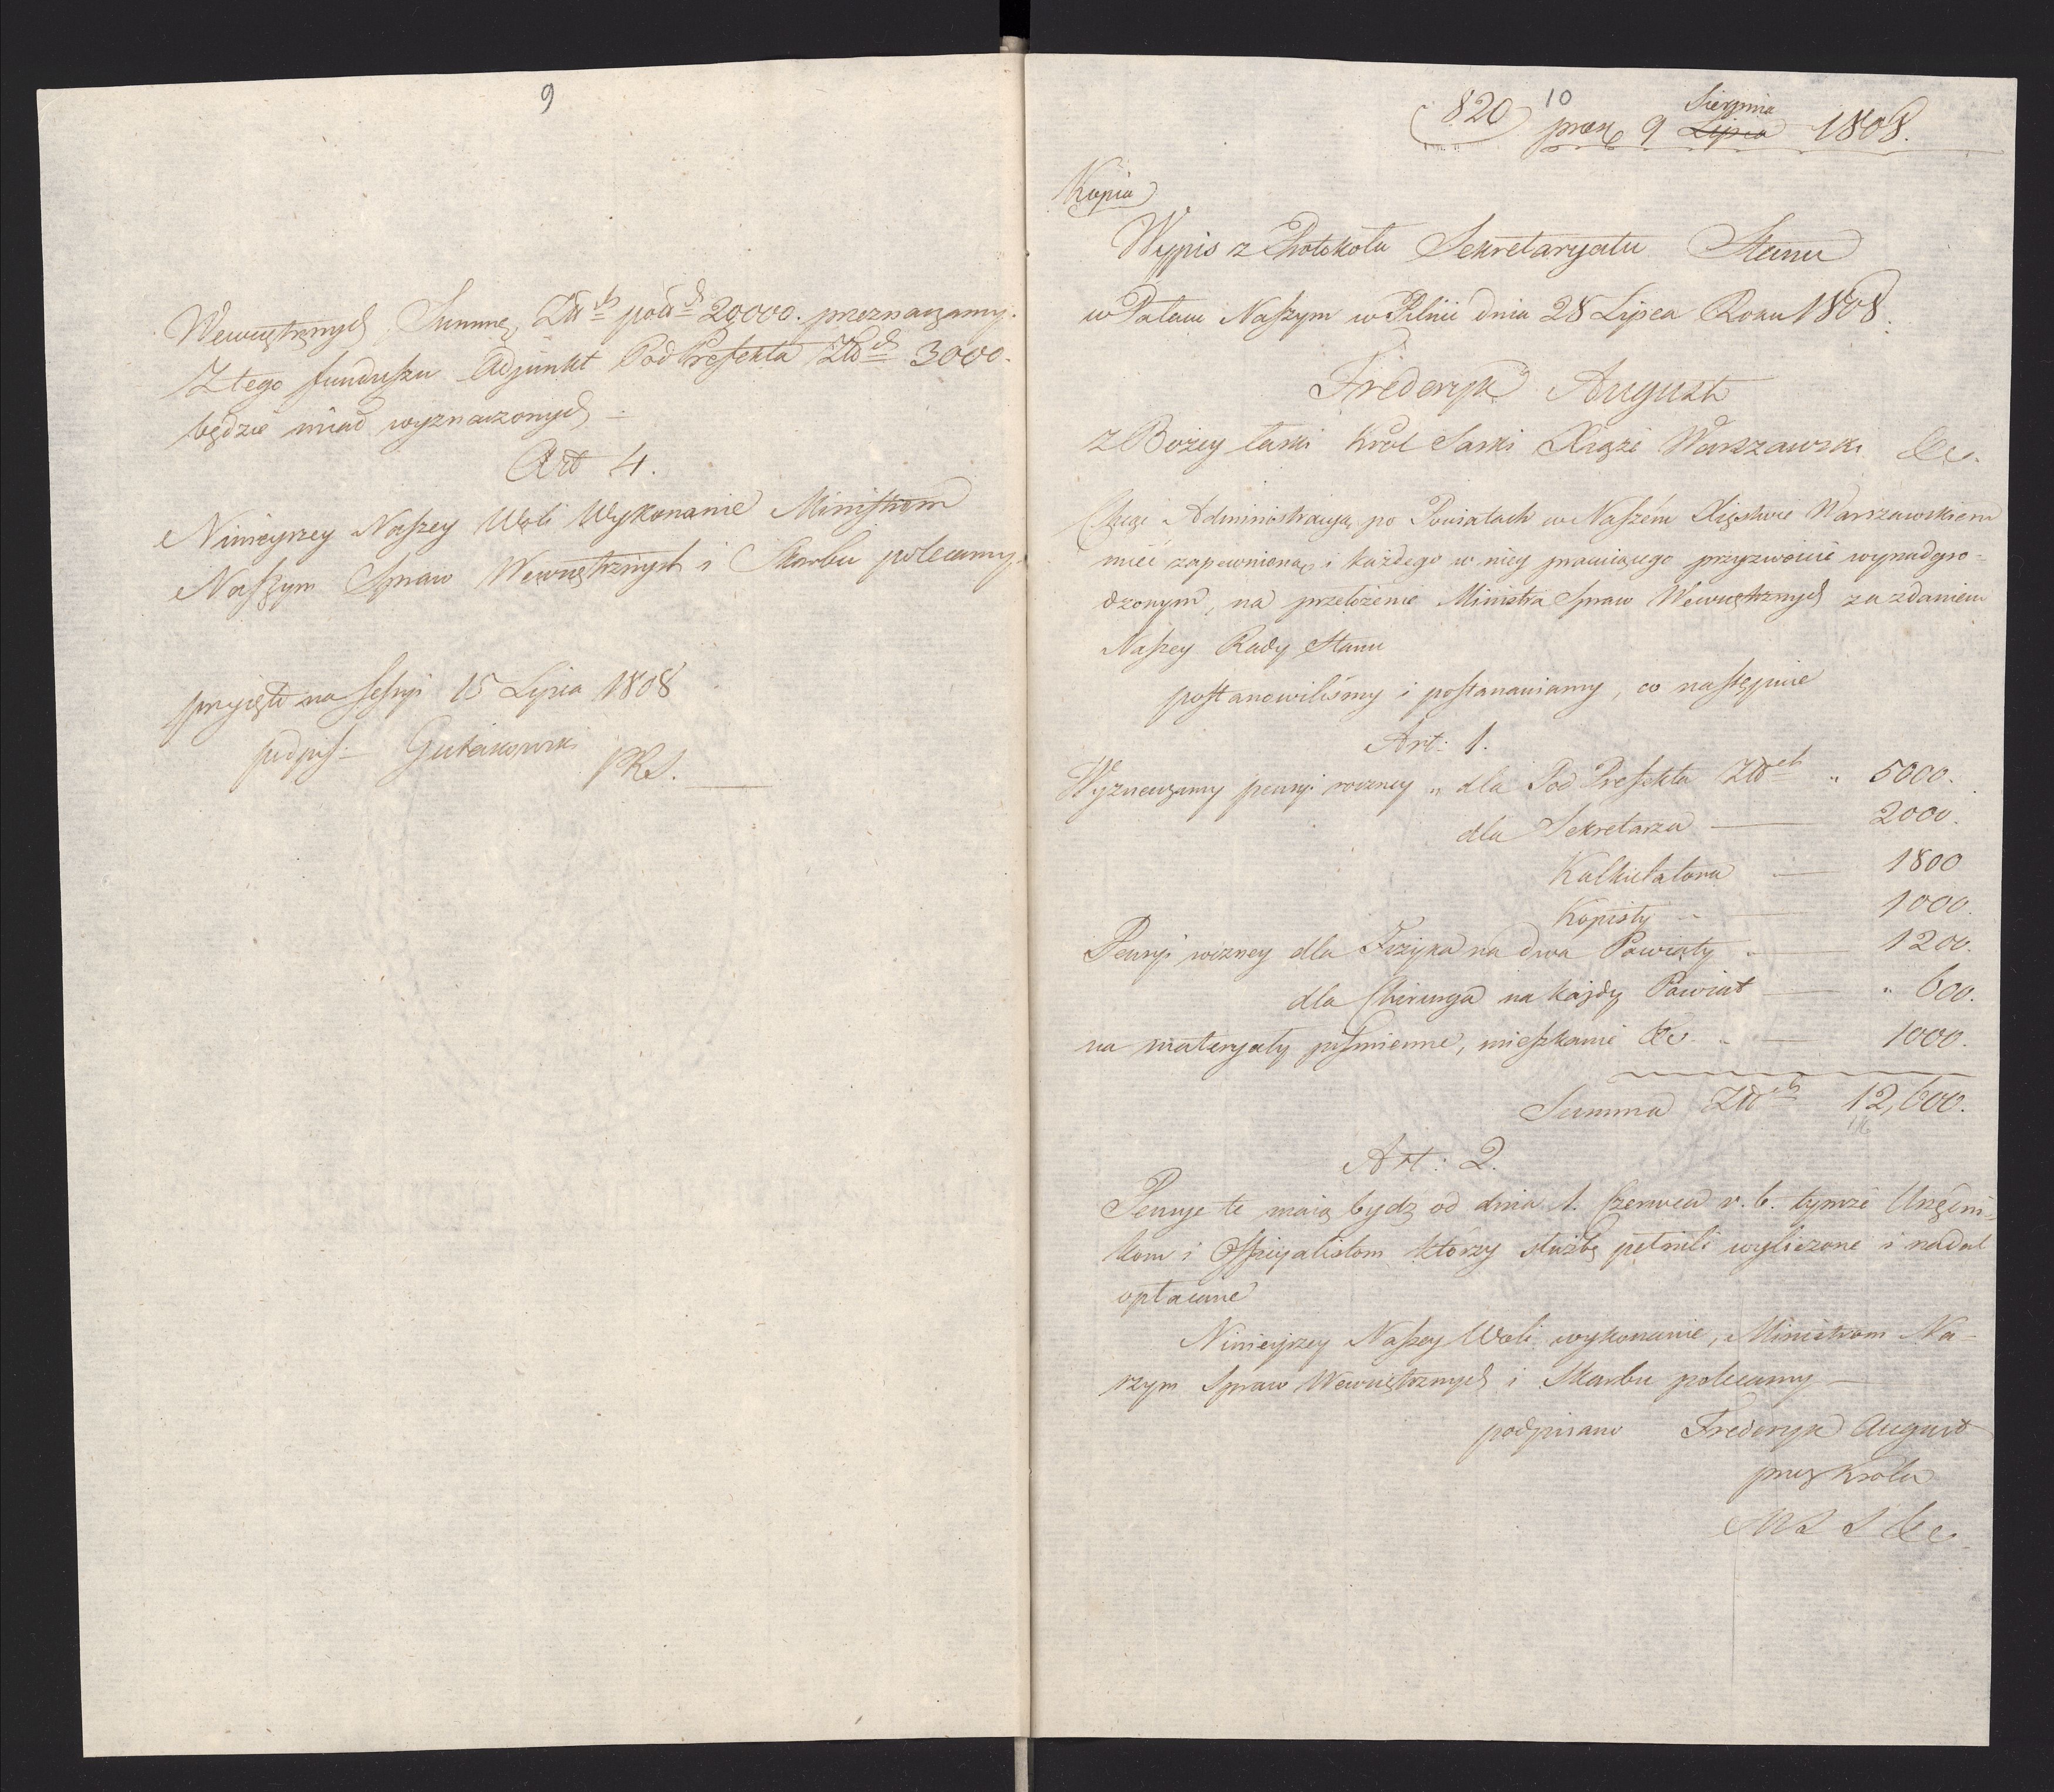 9
Wewnętrznych Summę Złł ch pols ch 20,000. przeznaczamy.
Z tego funduszu Adjunkt PodPrefekta Złł ch 3000.
będzie miał wyznaczonych —
Art 4.
Ninieyszey Naszey Woli Wykonanie Ministrom
Naszym Spraw Wewnętrznych i Skarbu polecamy.
przyięto na Sessyi 15 Lipca 1808
podpis: — Gutakowski
PRS.
820 10
Sierpnia
praes 9 Lipca 1808.
Kopia
Wypis z Protokołu Sekretaryatu Stanu
w Pałacu Naszym w Pilnic dnia 28 Lipca Roku 1808.
Frederyk August
z Bożey łaski Król Saski Xiąże Warszawski &c.
Chcąc Administracyą po Powiatach w Naszém Xięstwie Warszawskiem
mieć zapewnioną, i każdego w niey pracuiącego przyzwoicie wynadgro-
dzonym, na przełożenie Ministra Spraw Wewnętrznych za zdaniem
Naszey Rady Stanu
postanowiliśmy i postanawiamy, co następuie
Art: 1.
Wyznaczamy pensyi roczney „ dla Pod Prefekta Złł ch „ 5000.
dla Sekretarza — 2000.
Kalkulatora — 1800
Kopisty „ — 1000.
Pensyi roczney dla Fizyka na dwa Powiaty „ — 1200.
dla Chirurga na każdy Powiat — „ 600.
na materyały piśmienne, mieszkanie &c. „ — 1000.
Summa Złł ch 12,600.
Art: 2.
Pensye te maią bydz od dnia 1. Czerwca r. b. tymże Urzędni-
kom i Officyalistom którzy służbę pełnili wyliczone i nadal
opłacane
Ninieyszey Naszey Woli wykonanie, Ministrom Na-
szym Spraw Wewnętrznych i Skarbu polecamy —
podpisano Frederyk August
przez Króla
M S S &c.